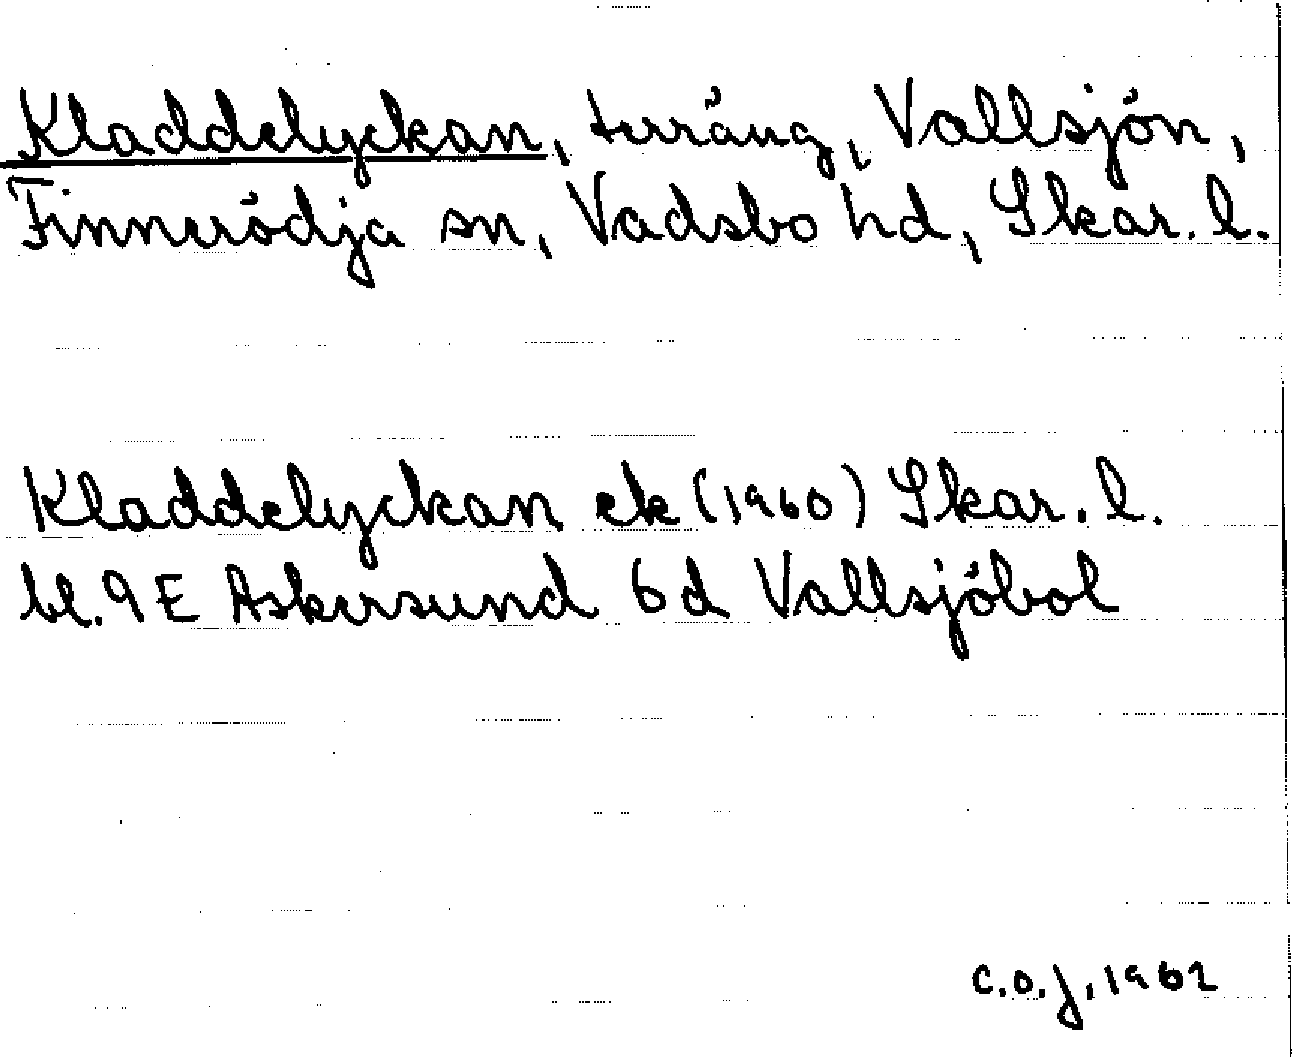 Kladdelyckan, terräng, Vallsjön,
Finnerödja sn, Vadsbo hd, Skar. l.
Kladdelyckan ek (1960) Skar. l.
bl. 9 E Askersund 6d Vallsjöbol
C.O.J, 1962